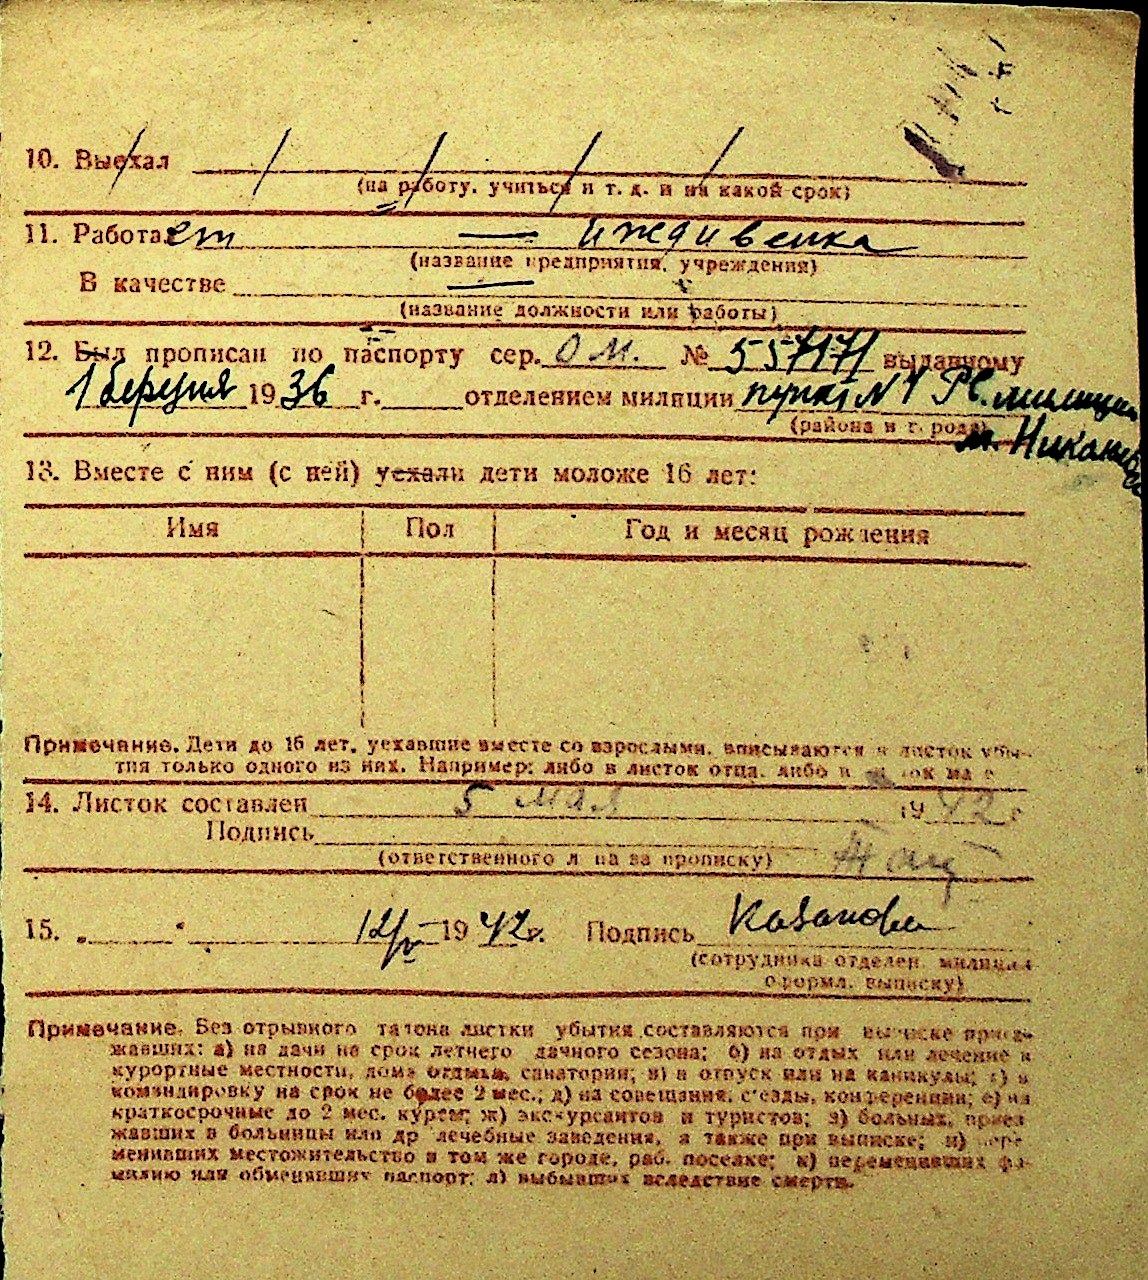 10. Выехал
(на работу, учиться и т. д. и на какой срок)
11. Работает — иждивенка
(название предприятия, учреждения)
В качестве —
(название должности или работы)
12. Был прописан по паспорту сер. О М. № 557171 выданному
1 березня 1936 г. отделением милиции пункт N 1 Рс. милиции
(района и города)
м. Никол
13. Вместе с ним (с ней) уехали дети моложе 16 лет:
Имя Пол Год и месяц рождения
Примечание. Дети до 16 лет, уехавшие вместе со взрослыми, вписываются в листок убы-
тия только одного из них. Например: либо в листок отца, либо в
14. Листок составлен 5 мая 1942 г
Подпись
(ответственного лица за прописку)
15. 12/V 1942 г. Подпись Казанова
(сотрудника отделен. милиции
оформл. выписку)
Примечание. Без отрывного талона листки убытия составляются при выписке приез-
жавших: а) на дачи на срок летнего дачного сезона; б) на отдых или лечение в
курортные местности, дома отдыха, санатории; в) в отпуск или на каникулы; г) в
командировку на срок не более 2 мес.; д) на совещания, с'езды, конференции; е) на
краткосрочные до 2 мес. курсы; ж) экскурсантов и туристов; з) больных, приез
жавших в больницы или др лечебные заведения, а также при выписке; и) пере
менивших местожительство в том же городе, раб. поселке; к) переменивших фа-
милию или обменявших паспорт; л) выбывших вследствие смерти.